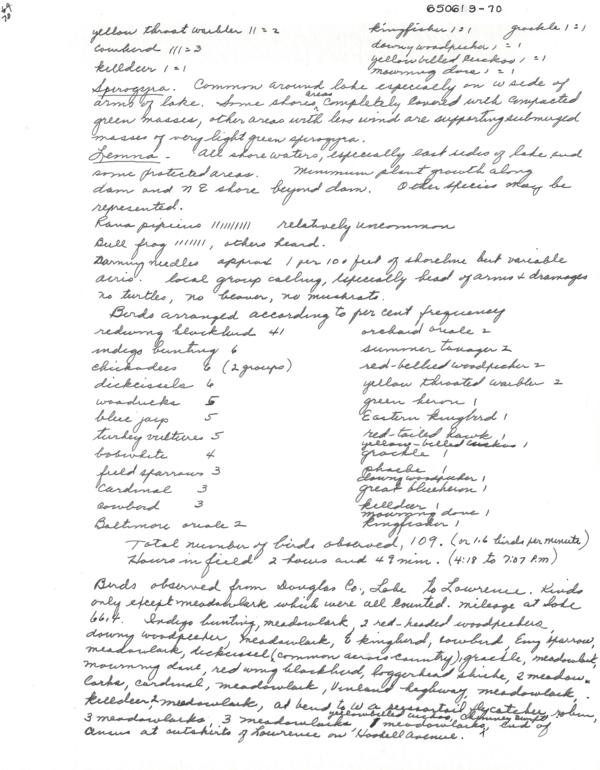 650619-70
yellow throat warbler 11 = 2 kingfisher 1 = 1 grackle 1 = 1
cowbird 111 = 3 downy woodpecker 1 = 1
yellow billed cuckoo 1 = 1
killdeer 1 = 1 mourning dove 1 = 1
Spirogyra. Common around lake especially on W side of
arms of lake. Some shores areas completely covered with compacted
green masses, other areas with less wind are supporting submerged
masses of very light green spirogyra.
Lemna - All shore waters, especially east sides of lake and
some protected areas. Minimum plant growth along
dam and N E shore beyond dam. Other species may be
represented.
Rana pipiens 1111111111 relatively uncommon
Bull frog 1111111, others heard.
Darning needles approx 1 per 100 feet of shoreline but variable
acris. local group calling, especially head of arms & drainages
no turtles, no beaver, no muskrats.
Birds arranged according to per cent frequency
redwing blackbird 41 orchard oriole 2
indigo bunting 6 summer tanager 2
chickadees 6 (2 groups) red-bellied woodpecker 2
dickcissels 6 yellow throated warbler 2
woodducks 5 green heron 1
blue jays 5 Eastern kingbird 1
turkey vultures 5 red-tailed hawk 1
yellow-billed cuckoo 1
bobwhite 4 grackle 1
field sparrows 3 phoebe 1
downy woodpecker 1
Cardinal 3 great blue heron 1
cowbird 3 killdeer 1
mourning dove 1
Baltimore oriole 2 kingfisher 1
Total number of birds observed, 109. (or 1.6 birds per minute)
Hours in field 2 hours and 49 min. (4:18 to 7:07 P.M)
Birds observed from Douglas Co., Lake to Lawrence. Kinds
only except meadowlark which were all counted. mileage at Lake
66.4. Indigo bunting, meadowlark, 2 red-headed woodpeckers,
downy woodpecker, meadowlark, E kingbird, cowbird Eng sparrow,
meadowlark, dickcissel (common across country), grackle, meadowlark,
mourning dove, red wing blackbird, loggerhead shrike, 2 meadow-
larks, cardinal, meadowlark, Vinland highway, meadowlark,
killdeer, 2 meadowlark, at bend to W a scissortail flycatcher, robin,
yellowbilled cuckoo, chimney swift
3 meadowlarks, 3 meadowlarks, meadowlarks, End of
census at outskirts of Lawrence on Haskell Avenue.